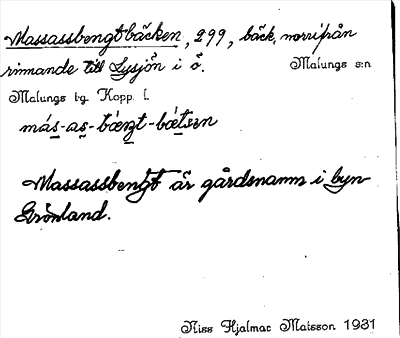 Massassbengtbäcken, 299, bäck, norrifrån
rinnande till Lysjön i ö. Malungs s:n
Malungs tg. Kopp. l.
más-as-bæŋt-bǽtsɛn
Massassbengt är gårdsnamn i byn
Grönland.
Niss Hjalmar Matsson 1931